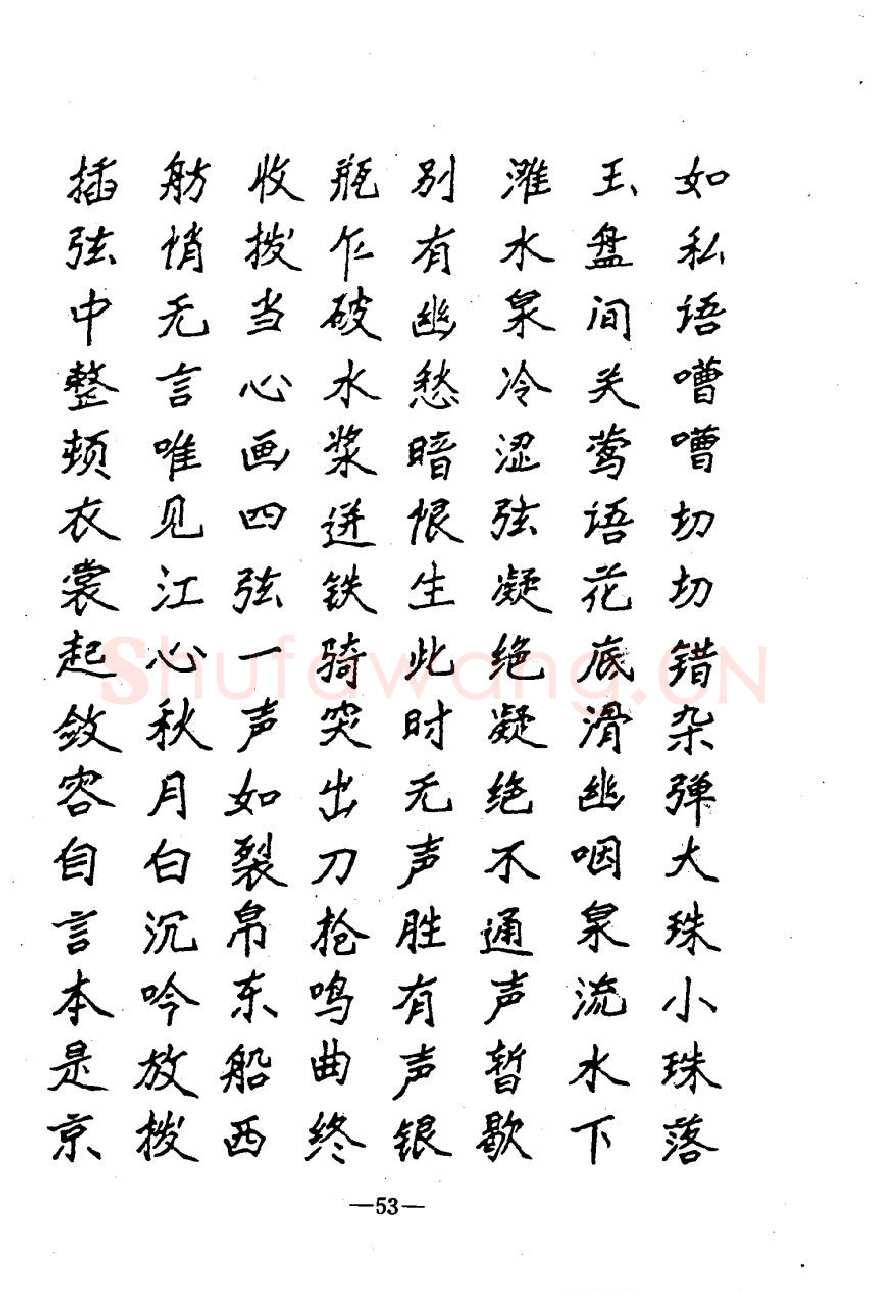 如私语嘈嘈切切错杂弹大珠小珠落
玉盘间关莺语花底滑幽咽泉流水下
滩水泉冷涩弦凝绝凝绝不通声暂歇
别有幽愁暗恨生此时无声胜有声银
瓶乍破水浆迸铁骑突出刀枪鸣曲终
收拨当心画四弦一声如裂帛东船西
舫悄无言唯见江心秋月白沉吟放拨
插弦中整顿衣裳起敛容自言本是京
Shufawang.CN
—53—